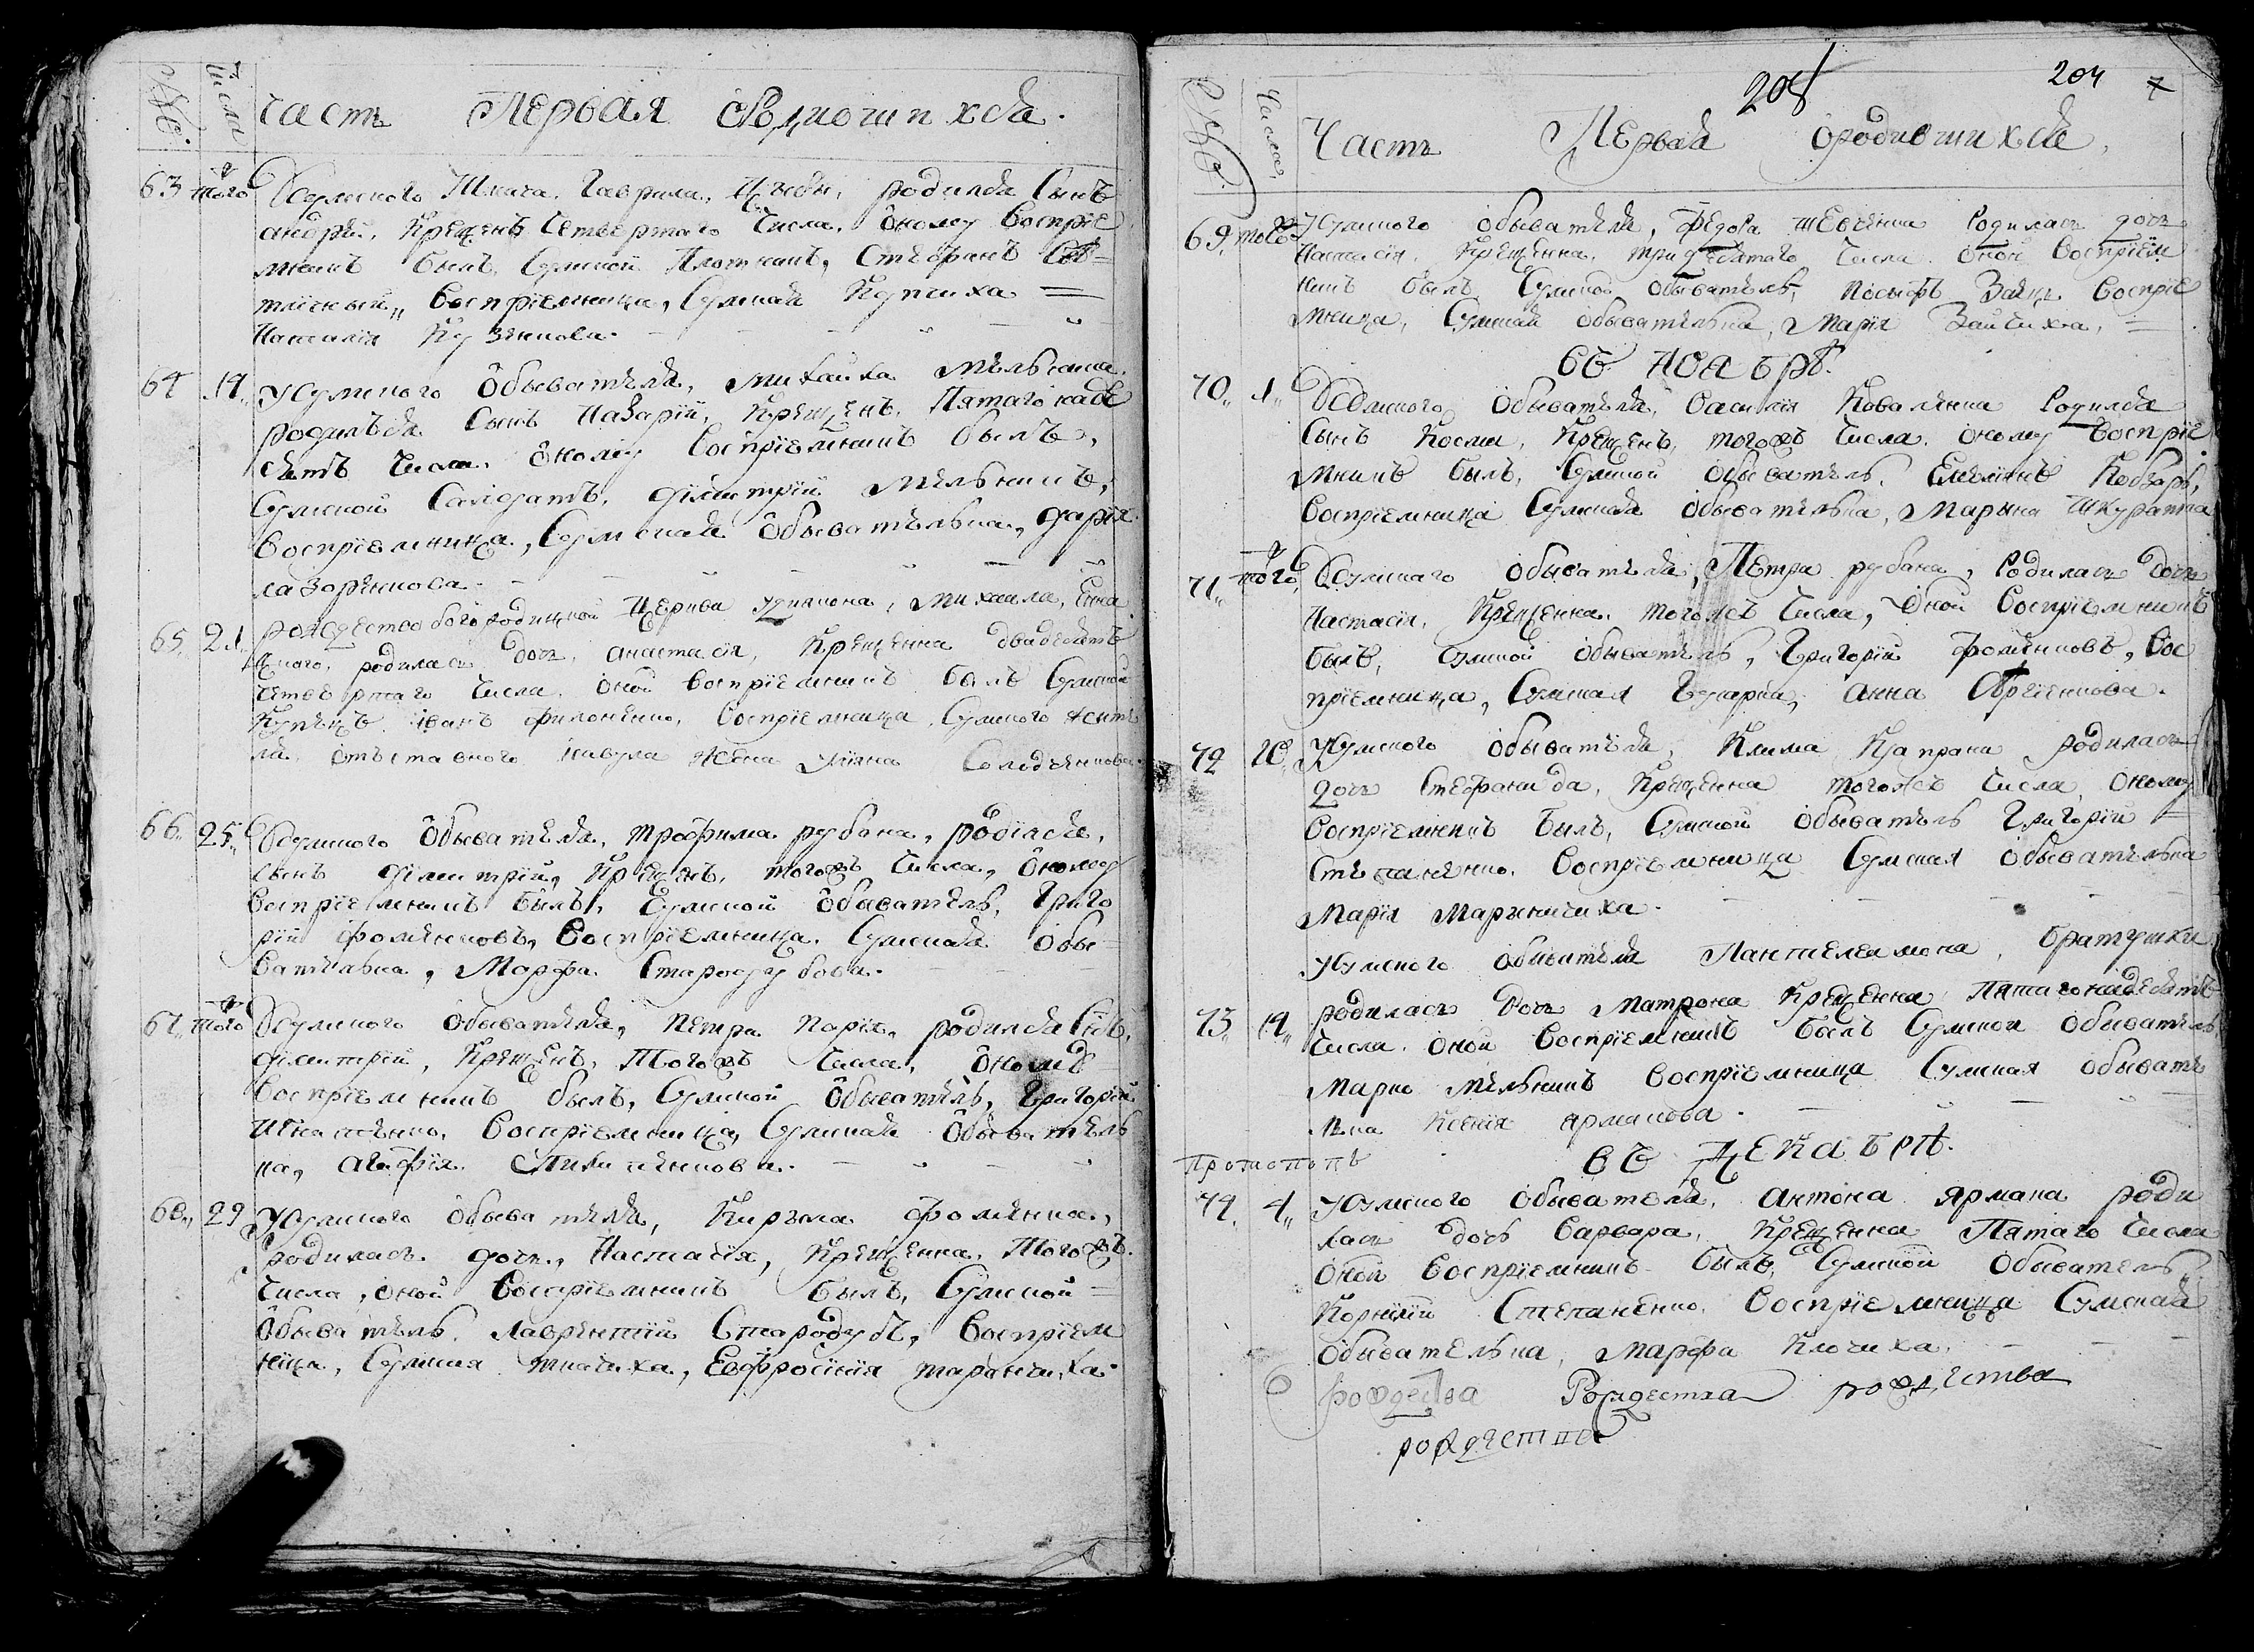 № Числа Часть Первая ородившихся.
63 того ж Усумского Ткача, Гаврила, родился Сынъ
андрей, Крещенъ Четвертаго Числа, оному Восприе
мникъ былъ, Сумской Плотникъ, Стефанъ
Восприемница, Сумская Купчиха
Наталия Кузенкова.
64 14 Усумского Обывателя, михайла мельника
родился Сынъ Назарий, Крещенъ, Пятагонаде
сять Числа. Оному Восприемникъ былъ,
Сумской Салдатъ, димитрий мельникъ,
Восприемница, Сумская Обывателька, дария
лазоренкова.
65 21 рождество богородицкой Церкви удиякона, михаила,
родилась дочь, анастасия, Крещенна двадесять
четвертаго Числа, оной восприемникъ былъ Сумской
Купецъ иванъ филоненко, Восприемница, Сумского жите
ля, отъставного жена улияна Солодченкова
66 25 Усумского Обывателя, трофима рубана, родился,
Сынъ димитрий, Крещенъ, тогожъ Числа, Оному
Восприемникъ былъ, Сумской Обыватель, Григо
рий фоменковъ, Восприемница. Сумская Обы-
вателька, Марфа Стародубова.
67 того ж Усумского Обывателя, петра родился Снъ,
димитрий, Крещенъ, Тогожъ Числа, Оному
Восприемникъ былъ, Сумской Обыватель, Григорий
Игнатенко, Восприемница, Сумская Обыватель
ка, агафия
68 29 Усумского Обывателя, Кирыла фоменка,
родилась дочь, Настасия, Крещенна, Тогожъ
Числа, оной Восприемникъ былъ, Сумской
Обыватель. лаврентий Стародубъ, Восприем
ница, Сумская ткачиха, Евфросиния таранчиха.
208 204 7
№ Числа Часть Первая ородившихся,
69 того ж Усумского обывателя, Федора шевченка Родилась дочь
Настасия, Крещенна, тридесятаго Числа оной Восприем
никъ былъ Сумской обыватель, иосифъ Заяцъ Восприе
мница, Сумская обывателька, Мария Зайчиха,
въ ноябрѣ.
70 1 Усумского Обывателя, василия Коваленка Родился
Сынъ Косма, Крещенъ, тогожъ Числа, оному Восприе
мникъ былъ, Сумской обыватель, Емелянъ Кобзарь,
Восприемница Сумская Обывателька, Марына Шкуратка
71 того ж Усумскаго обывателя, Петра рубана, Родилась дочь
Настасия, Крещенна, тогожъ Числа, Оной Восприемникъ
былъ, Сумской обыватель, Григорий фоменковъ, Вос
приемница, Сумская анна
72 10 Усумского обывателя, Клима Капрана родилась
дочь Стефанида, Крещенна тогожъ Числа, оному
Восприемникъ былъ, Сумской обыватель Григорий
Степаненко. Восприемница Сумская обывателька
Мария Марынчиха.
73 14 Усумского обывателя Пантелемона, братушки
родилась дочь матрона Крещенна Пятагонадесять
Числа. Оной Восприемникъ былъ Сумской обыватель,
марко мельникъ Восприемница Сумская обывате
лька Ксения ярмакова.
протопопъ въ декабрѣ.
74 4 Усумского обывателя, антона ярмака роди
лась дочь варвара, Крещенна Пятаго Числа
Оной Восприемникъ былъ, Сумской обыватель
Корнилий Степаненко, Восприемница Сумская
обывателька, марфа Клочиха,
рождества Рождества рождества
рождества